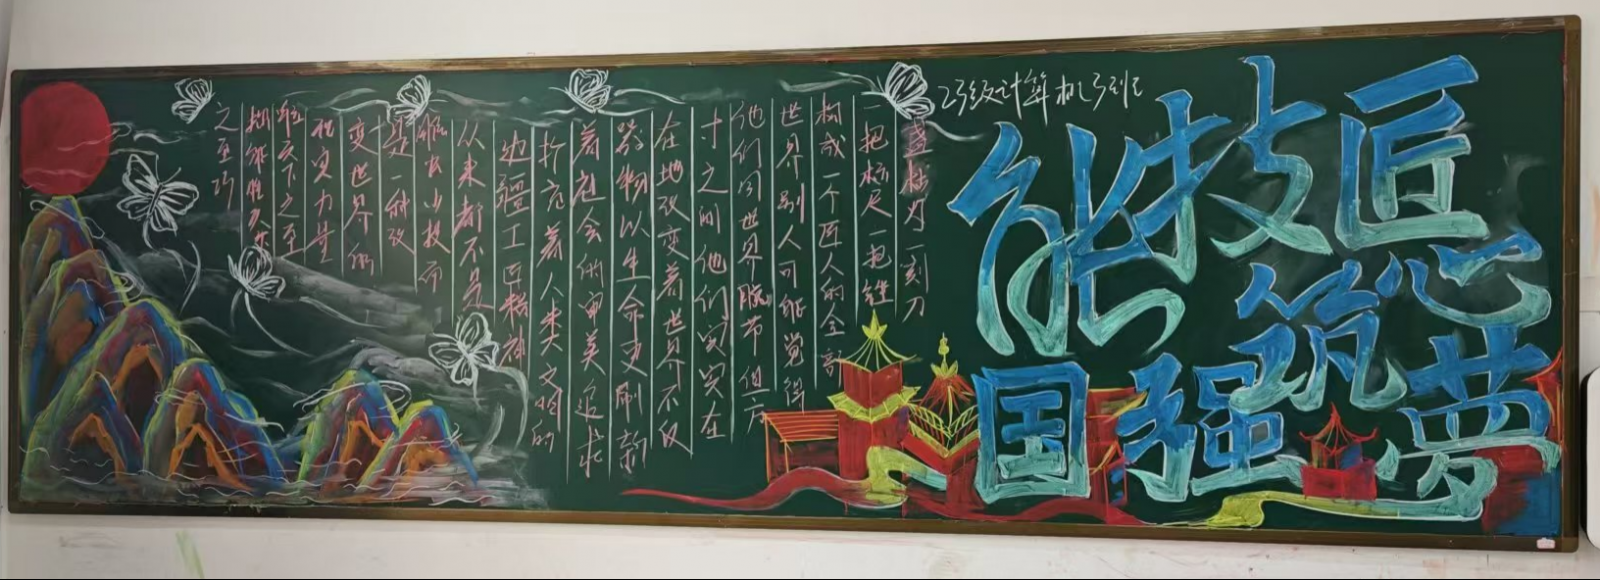 级计算机
匠心筑梦
技能强国
盏枯灯一刻刀
一把标尺一把锉
构成一个匠人的全部
世界别人可能觉得
他们同世界脱节但方
寸之间他们实实在
在地改变着世界不仅
器物以生命更刷新
着社会的审美追求
扩充着人类文明的
边疆工匠精神
从来都不是
雕虫小技而
是一种改
变世界的
现实力量
天下之至
拙能胜天
之至巧